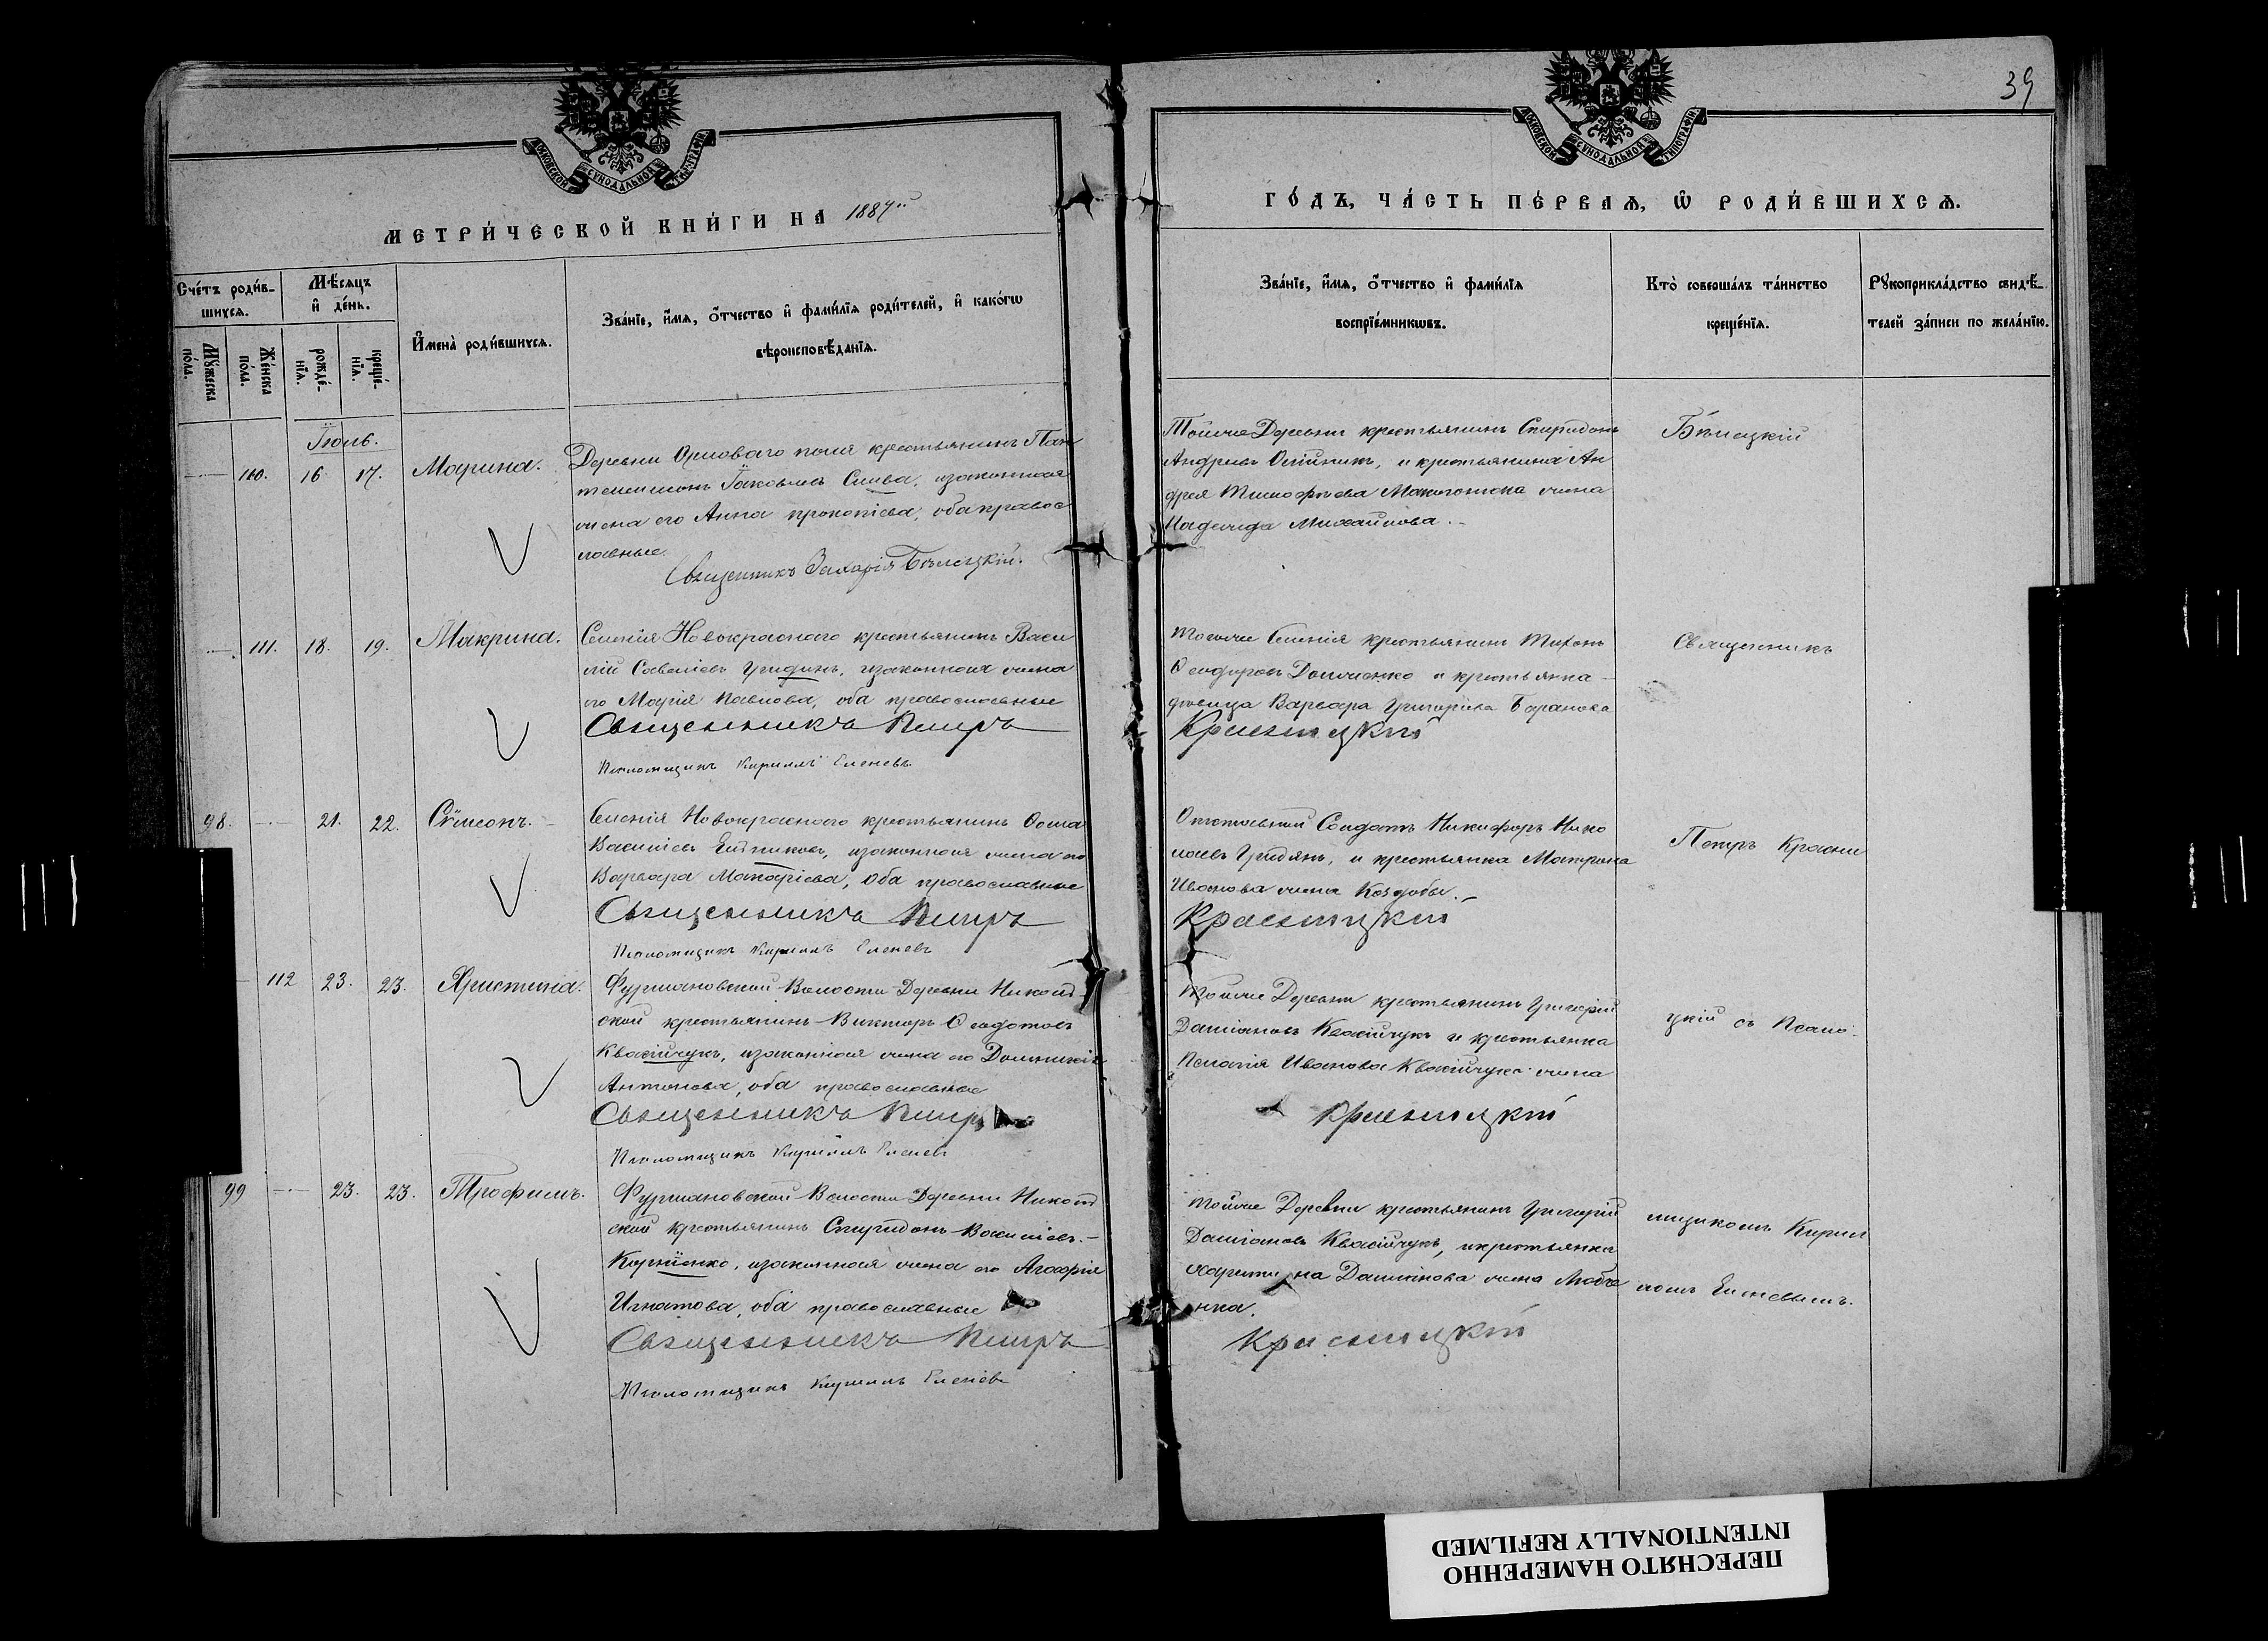 39
МОСКОВСКОЙ СѴНОДАЛЬНОЙ ТИПОГРАФІИ
МОСКОВСКОЙ СѴНОДАЛЬНОЙ ТИПОГРАФІИ
МЕТРИ́ЧЕСКОЙ КНИ́ГИ НА 1887й
ГО́ДЪ, ЧА́СТЬ ПЕ́РВАѦ, Ѡ РОДИ́ВШИХСѦ.
Сче́тъ роди́в-
шихсѧ.
Мꙋ́жеска по́ла.
Же́нска по́ла.
Мѣ́сѧцъ и҆ де́нь.
рожде́-нїѧ.
креще́-нїѧ.
И҆мена̀ роди́вшихсѧ.
Зва́нїе, и҆́мѧ, ѻ҆́тчество и҆ фами́лїѧ роди́телей, и҆ како́гѡ
вѣроисповѣ́данїѧ.
Зва́нїе, и҆́мѧ, ѻ҆́тчество и҆ фами́лїѧ
воспрїе́мникѡвъ.
Кто̀ соверша́лъ та́инство
креще́нїѧ.
Рꙋкоприкла́дство свидѣ́-
телей за́писи по жела́нїю.
Іюль.
110. 16. 17. Марина.
Деревни поля крестьянинъ Пан
телеимонъ Іаковлевъ Слива, изаконная
жена его Анна прокопіева, оба правос
лавные.
Священникъ Захарія Бѣлецкій.
Тойже Деревни крестьянинъ Спиридонъ
Андреевъ Олійникъ, и крестьянина Ан
дрея Тимофѣева жена
Надежда Михайлова.
Бѣлецкій
111. 18. 19. Макрина.
Селенія Новокраснаго крестьянинъ Васи
лій Савеліевъ Гридинъ, изаконная жена
его Марія Павлова, оба православные
Священникъ Петръ
Псаломщикъ Кириллъ Еленевъ
Тогоже Селенія крестьянинъ
Ѳеодоровъ и крестьянка
дѣвица Варвара Григоріева Баранова
Красницкій
Священникъ
98. 21. 22. Сѵмеонъ.
Селенія Новокраснаго крестьянинъ Ѳома
Василіевъ изаконная жена его
Варвара Макаріева, оба православные
Священникъ Петръ
Псаломщикъ Кириллъ Еленевъ
Отставный Солдатъ Никифоръ Нико
лаевъ Гридинъ, и крестьянка Матрона
Иванова жена Коздобы.
Красницкій
Петръ Красни
112 23. 23. Христина.
Фурмановской Волости Деревни Николь
ской крестьянинъ Викторъ Ѳеодотовъ
Квасійчукъ, изаконная жена его Домникія
Антонова, оба православные
Священникъ Петръ
Псаломщикъ Кириллъ Еленевъ
Тойже Деревни крестьянинъ Григорій
Даміановъ Квасійчукъ и крестьянка
Пелагія Иванова Квасійчука жена
Красницкій
цкій съ Псало-
99 23. 23. Трофимъ.
Фурмановской Волости Деревни Николь
ской крестьянинъ Спиридонъ Василіевъ
Корніенко, изаконная жена его Агафія
Игнатова, оба православные
Священникъ Петръ
Псаломщикъ Кириллъ Еленевъ
Тойже Деревни крестьянинъ Григорій
Даміановъ Квасійчукъ, и крестьянка
Харитина Даміанова жена Любче
нка.
Красницкій
мщикомъ Кирил
ломъ Еленевымъ.
ПЕРЕСНЯТО НАМЕРЕННО
INTENTIONALLY REFILMED